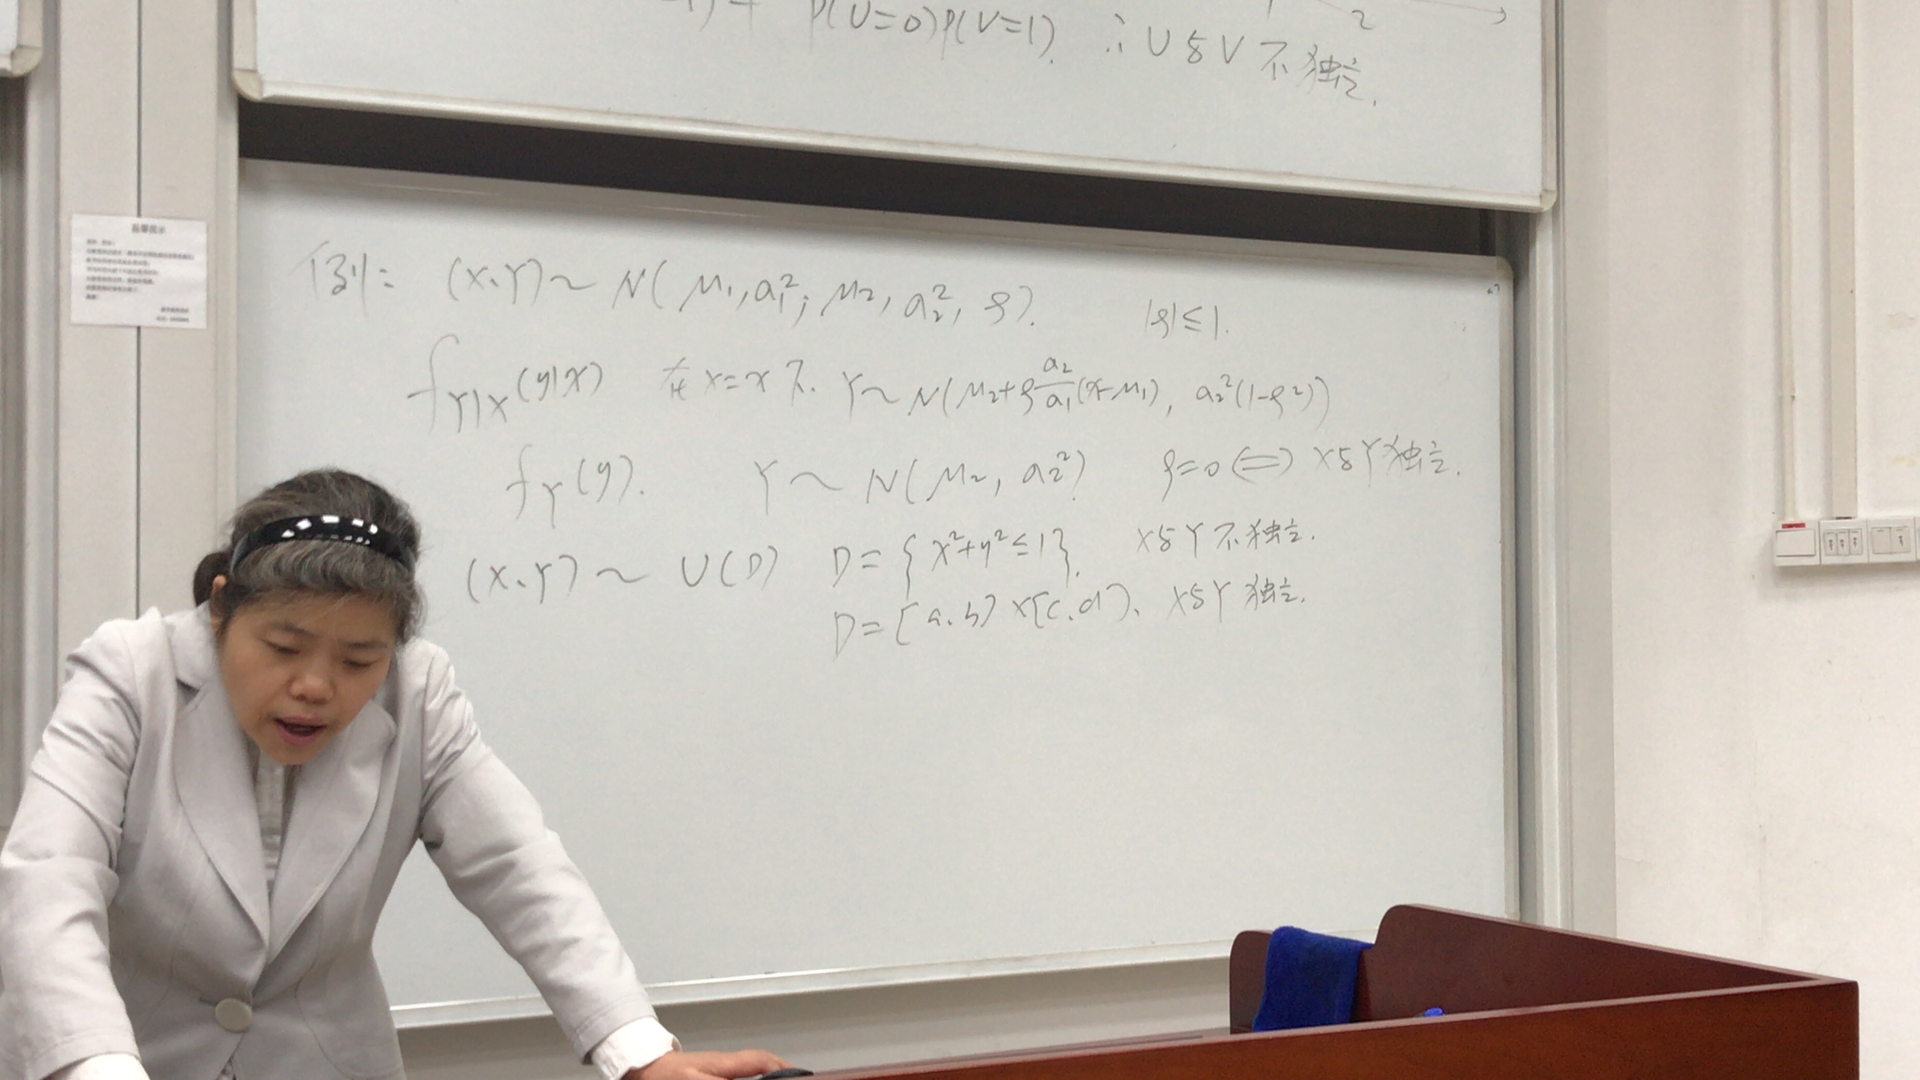 P(U=0)P(V=1) ∴ U与V不独立.
2
例: (X、Y)~N(μ₁,a₁²; μ₂, a₂², ρ). |ρ|≤1.
f_{Y|X}(y|x) 在X=x下. Y~N(μ₂+ρ\frac{a₂}{a₁}(x-μ₁), a₂²(1-ρ²))
f_Y(y). Y~N(μ₂, a₂²) ρ=0⇔X与Y独立.
(X、Y)~U(D) D={x²+y²≤1}. X与Y不独立.
D=[a.b]×[c.d]、X与Y独立.